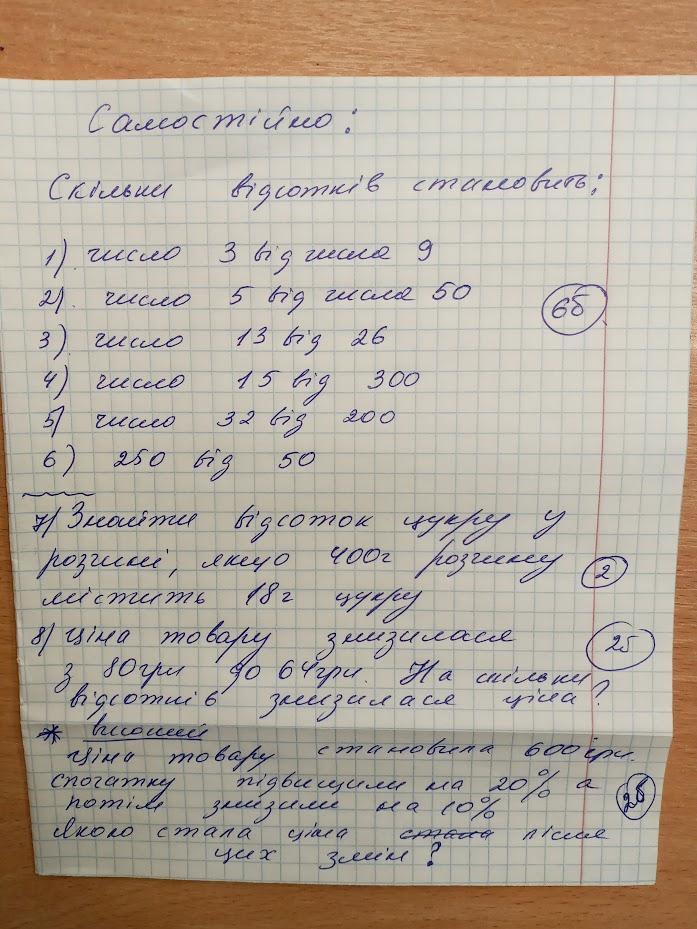 Самостійно:
Скільки відсотків становить:
1) число 3 від числа 9
2) число 5 від числа 50
6б
3) число 13 від 26
4) число 15 від 300
5) число 32 від 200
6) 250 від 50
7) Знайти відсоток цукру у
розчині, якщо 400г розчину
2
містить 18г цукру
8) Ціна товару знизилася
2б
з 80грн до 64грн. На скільки
відсотків знизилася ціна?
* високий
Ціна товару становила 600грн.
спочатку підвищили на 20% а
2б
потім знизили на 10%
Якою стала ціна стала після
цих змін?